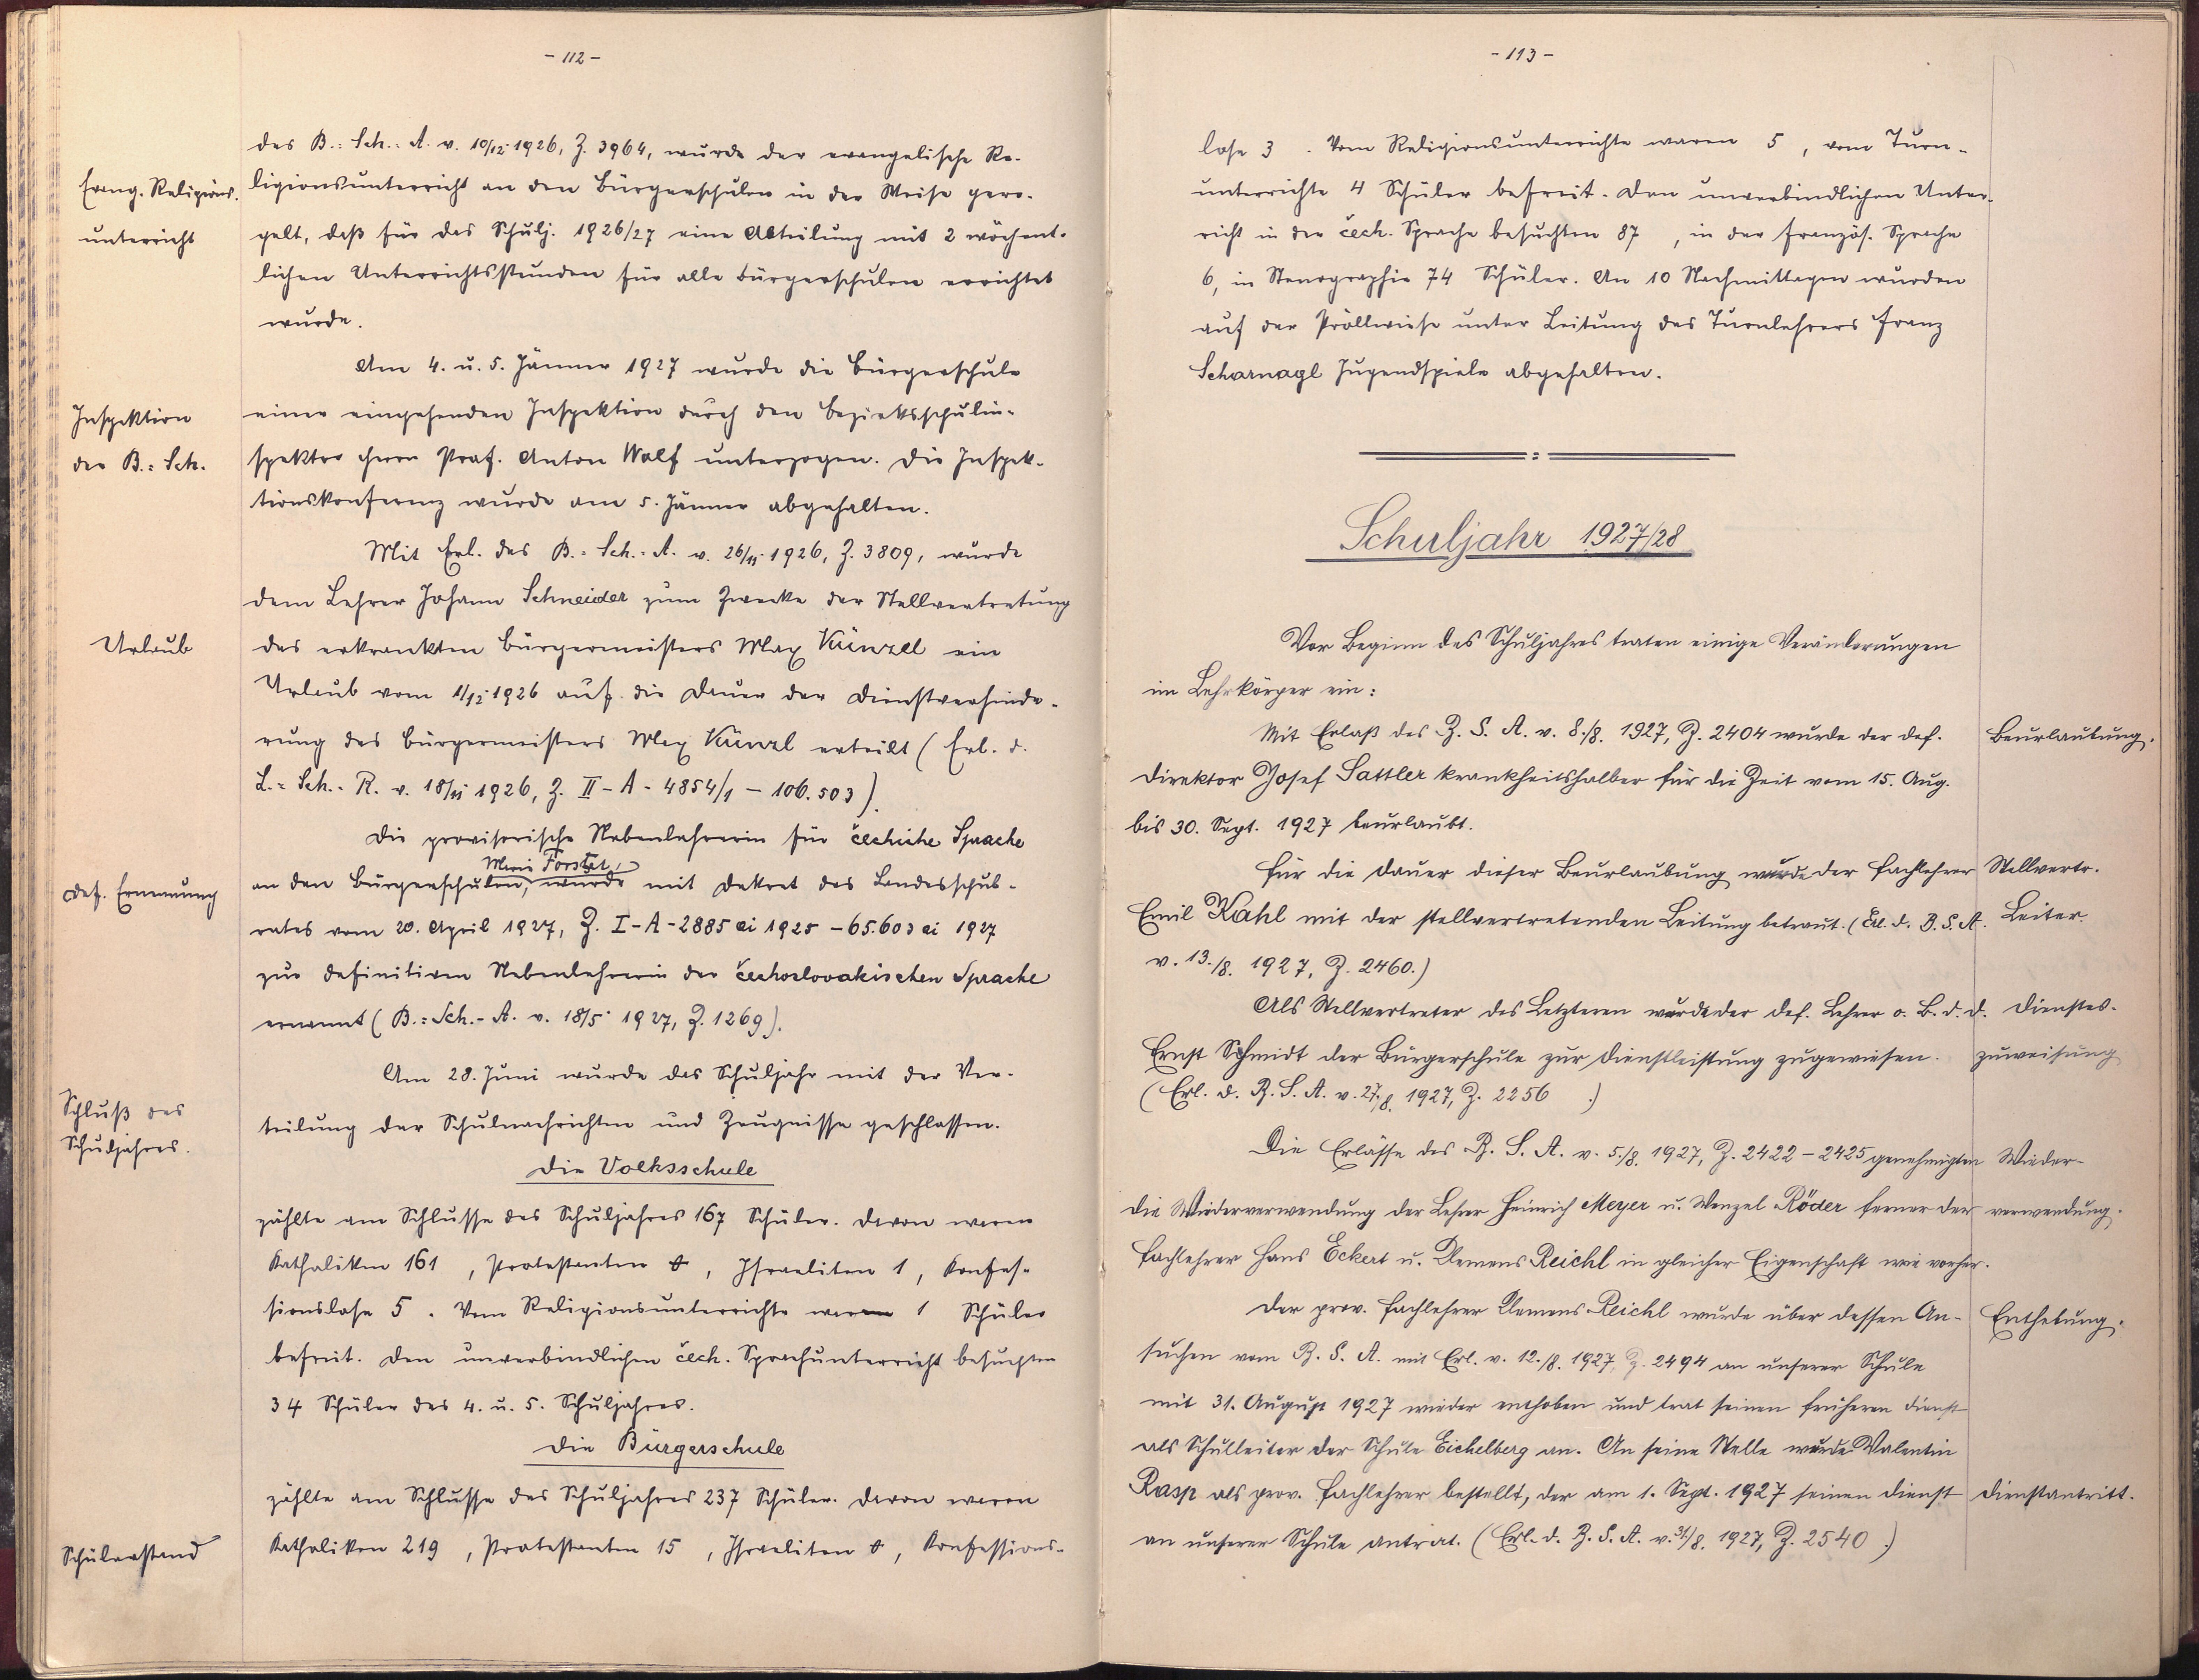 - 112 -
des B.: Sch.: A. v. 10/12. 1926, Z. 3964, wurde der evangelische Re-
Evang. Religions-
ligionsunterricht an den Bürgerschulen in der Weise gere-
unterricht
gelt, daß für das Schulj. 1926/27 eine Abteilung mit 2 wöchent-
lichen Unterrichtsstunden für alle Bürgerschulen errichtet
wurde.
Am 4. u. 5. Jänner 1927 wurde die Bürgerschule
Inspektion
einer eingehenden Inspektion durch den Bezirksschulin-
der B.: Sch.
spektor Herrn Prof. Anton Wolf unterzogen. Die Inspek-
tionskonferenz wurde am 5. Jänner abgehalten.
Mit Erl. des B.: Sch.: A. v. 26/11. 1926, Z. 3809, wurde
dem Lehrer Johann Schneider zum Zwecke der Stellvertretung
Urlaub
des erkrankten Bürgermeisters Max Künzel ein
Urlaub vom 1/12. 1926 auf die Dauer der Dienstverhinde-
rung des Bürgermeisters Max Künzl erteilt (Erl. d.
L.: Sch.: R. v. 18/11. 1926, Z. II - A - 4854/1 - 106.503).
Die provisorische Nebenlehrerin für čechiche Sprache
Marie Forster,
def. Ernennung
an den Bürgerschulen, wurde mit Dekret des Landesschul-
rates vom 20. April 1927, Z. I - A - 2885 ai 1925 - 65.603 ai 1927
zur definitiven Nebenlehrerin der čechoslovakischen Sprache
ernannt (B.: Sch.- A. v. 18/5. 1927, Z. 1269).
Am 28. Juni wurde das Schuljahr mit der Ver-
Schluß des
teilung der Schulnachrichten und Zeugnisse geschlossen.
Schuljahres.
Die Volksschule
zählte am Schlusse des Schuljahres 167 Schüler. Davon waren
Katholiken 161, Protestanten 0, Israeliten 1, Konfes-
sionslose 5. Vom Religionsunterrichte waren 1 Schüler
befreit. Den unverbindlichen čech. Sprachunterricht besuchten
34 Schüler des 4. u. 5. Schuljahres.
Die Bürgerschule
zählte am Schlusse des Schuljahres 237 Schüler. Davon waren
Schülerstand
Katholiken 219, Protestanten 15, Israeliten 0, Konfessions-
- 113 -
lose 3. Vom Religionsunterrichte waren 5, vom Turn-
unterrichte 4 Schüler befreit. Den unverbindlichen Unter-
richt in der čech. Sprache besuchten 87, in der französ. Sprache
6, in Stenographie 74 Schüler. An 10 Nachmittagen wurden
auf der Pröllwiese unter Leitung des Turnlehrers Franz
Scharnagl Jugendspiele abgehalten.
Schuljahr 1927/28
Vor Beginn des Schuljahres traten einige Veränderungen
im Lehrkörper ein:
Mit Erlaß des B. S. A. v. 8./8. 1927, Z. 2404 wurde der def.
Beurlaubung.
Direktor Josef Sattler krankheitshalber für die Zeit vom 15. Aug.
bis 30. Sept. 1927 beurlaubt.
Für die Dauer dieser Beurlaubung wurde der Fachlehrer
Stellvertr.
Emil Kahl mit der stellvertretenden Leitung betraut. (Erl. d. B. S. A.
Leiter.
v. 13./8. 1927, Z. 2460.)
Als Stellvertreter des Letzteren wurde der def. Lehrer o. B. d. d.
Dienstes-
Ernst Schmidt der Bürgerschule zur Dienstleistung zugewiesen.
zuweisung
(Erl. d. B. S. A. v. 27./8. 1927, Z. 2256 .)
Die Erlässe des B. S. A. v. 5./8. 1927, Z. 2422 - 2425 genehmigten
Wieder-
die Wiederverwendung der Lehrer Heinrich Meyer u. Wenzel Röder ferner der
verwendung.
Fachlehrer Hans Eckert u. Klemens Reichl in gleicher Eigenschaft wie vorher.
Der prov. Fachlehrer Klemens Reichl wurde über dessen An-
Enthebung.
suchen vom B. S. A. mit Erl. v. 12./8. 1927, Z. 2494 an unserer Schule
mit 31. August 1927 wieder enthoben und trat seinen früheren Dienst
als Schulleiter der Schule Eichelberg an. An seine Stelle wurde Valentin
Rasp als prov. Fachlehrer bestellt, der am 1. Sept. 1927 seinen Dienst
Dienstantritt.
an unserer Schule antrat. (Erl. d. B. S. A. v. 31./8. 1927, Z. 2540.)